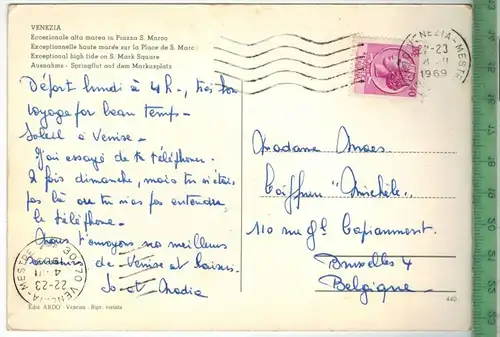 VENEZIA
Eccezionale alta marea in Piazza S. Marco
Exceptionnelle haute marée sur la Place de S. Marc
Exceptional high tide on S. Mark Square
Ausnahme - Springflut auf dem Markusplatz
Départ lundi à 4 h., très bon
voyage par beau temps -
Soleil à Venise -
J'ai essayé de te téléphoner
2 fois dimanche, mais tu n'étais
pas là ou tu n'as pas entendu
le téléphone.
Nous t'envoyons nos meilleurs
de Venise et baisers
Jo et Nadia
VENEZIA-MESTRE
22-23
1969
Madame Maes
Coiffure "Michèle"
110 rue Gl Capiaumont
Bruxelles 4
Belgique
30170 VENEZIA-MESTRE
22-23
Ediz. ARDO - Venezia - Ripr. vietata
440